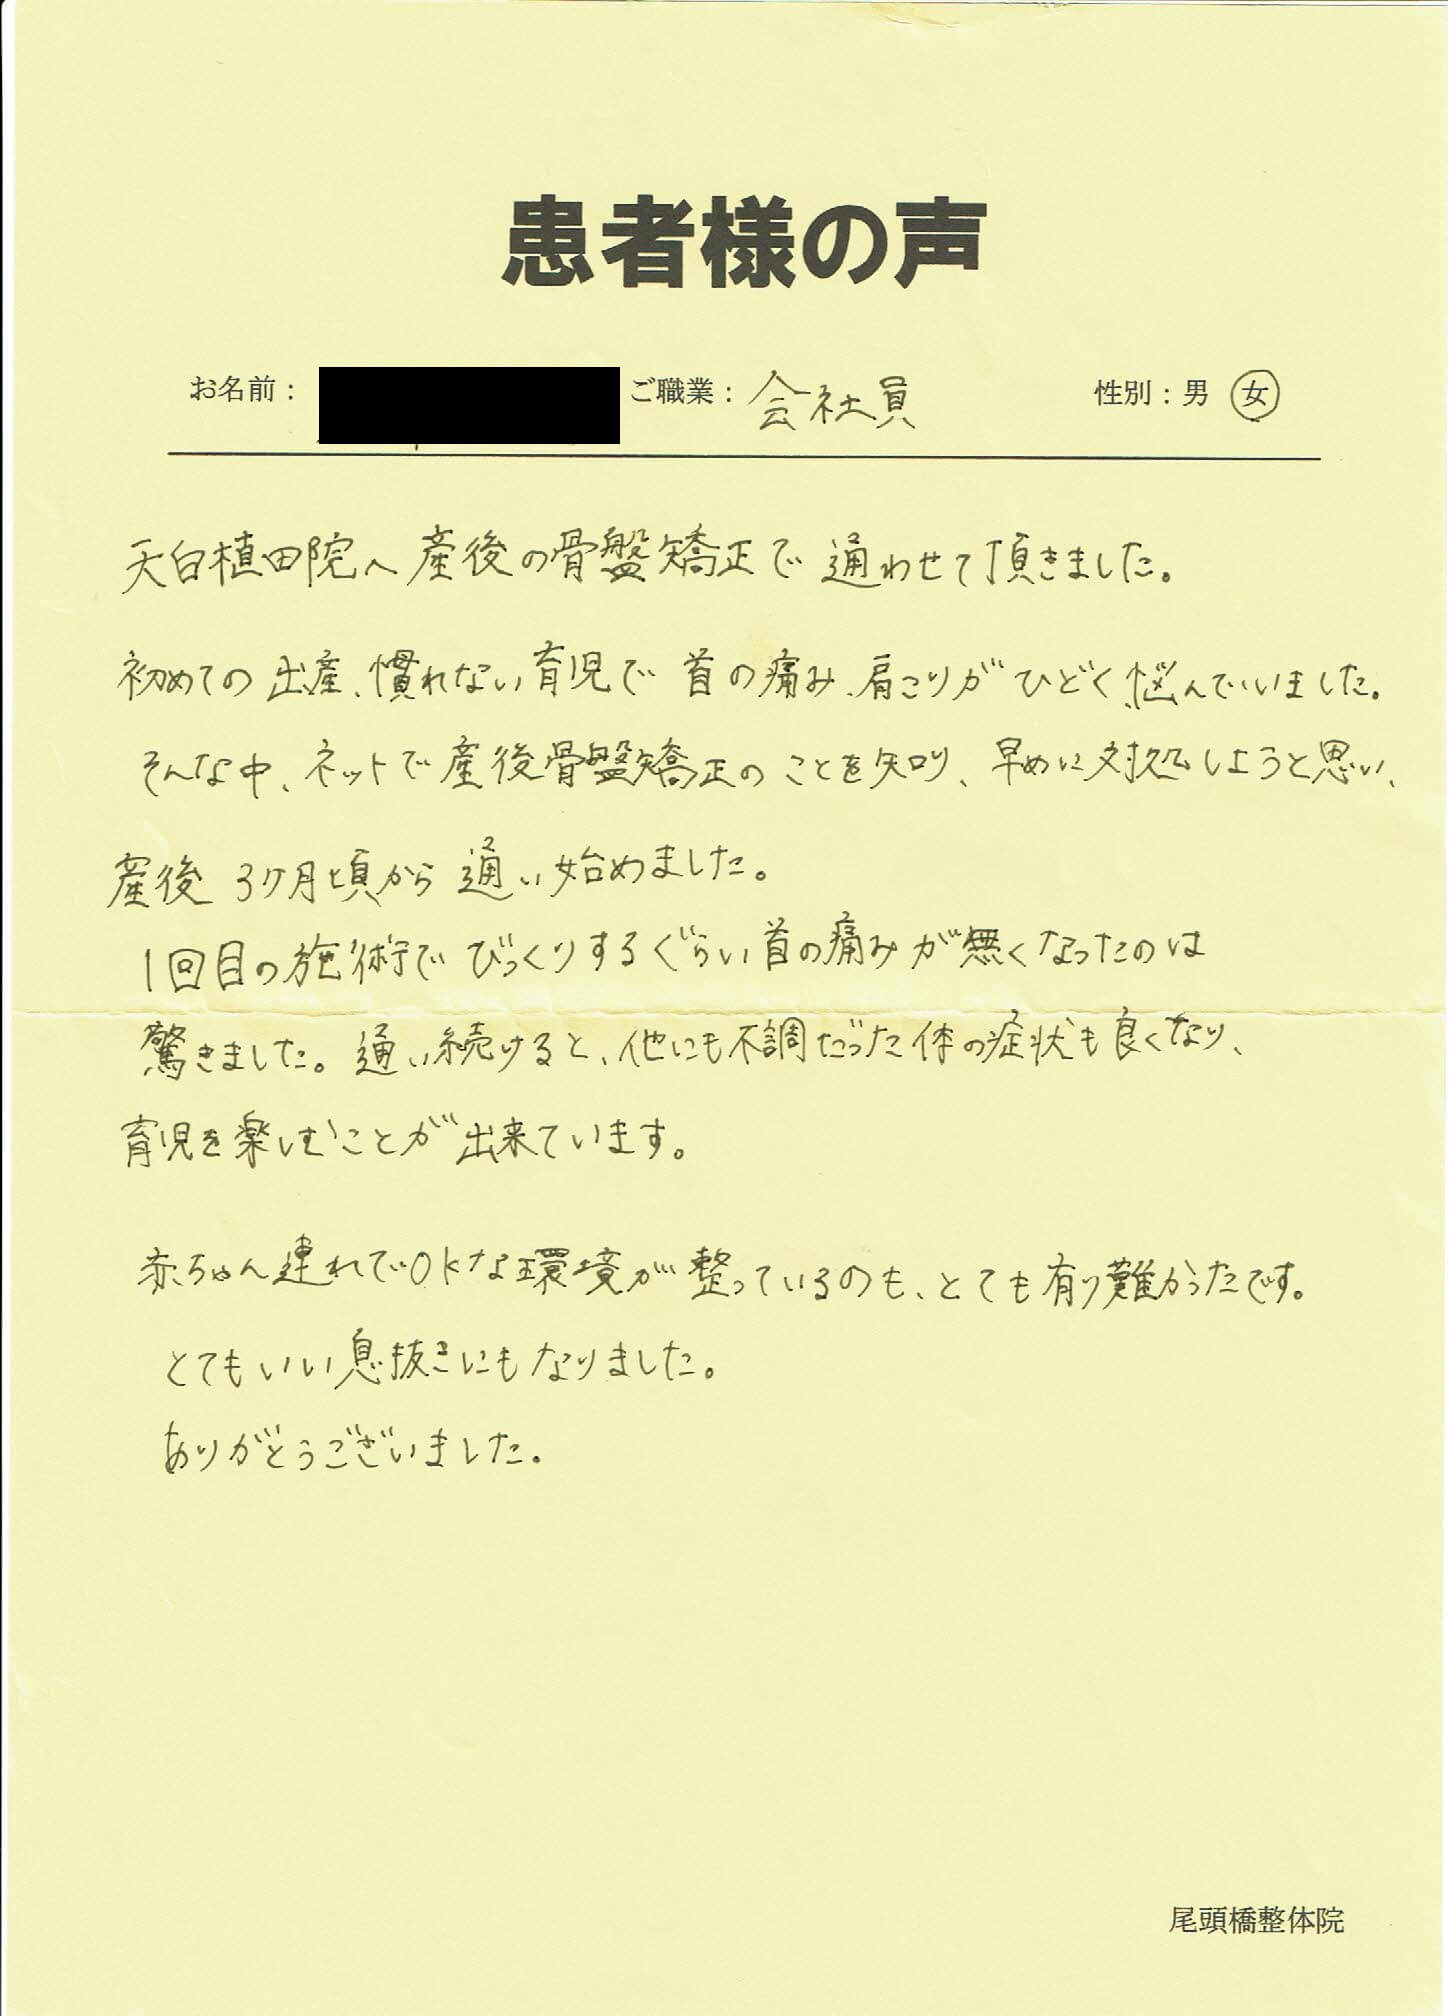 患者様の声
お名前： ご職業：会社員 性別：男 女
天白植田院へ産後の骨盤矯正で通わせて頂きました。
初めての出産、慣れない育児で首の痛み、肩こりがひどく、悩んでいました。
そんな中、ネットで産後骨盤矯正のことを知り、早めに対処しようと思い、
産後3ケ月頃から通い始めました。
1回目の施術でびっくりするぐらい首の痛みが無くなったのは
驚きました。通い続けると、他にも不調だった体の症状も良くなり、
育児を楽しむことが出来ています。
赤ちゃん連れでOKな環境が整っているのも、とても有り難かったです。
とてもいい息抜きにもなりました。
ありがとうございました。
尾頭橋整体院